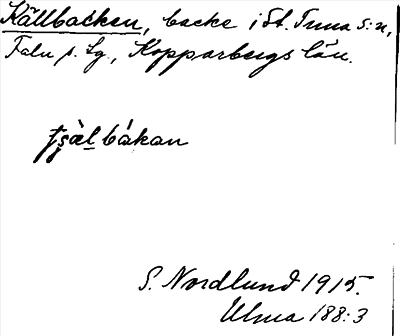 Källbacken, backe i St. Tuna s:n,
Falu s. Lg., Kopparbergs län.
bákan
S. Nordlund 1915.
Ulma 188:3